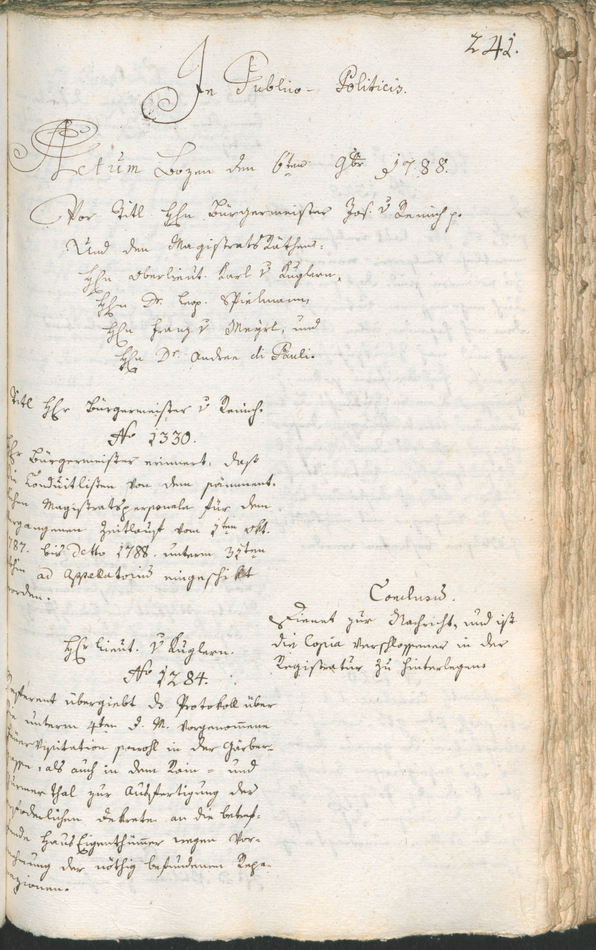 241.
In Publico- Politicis.
Actum Bozen den 6ten 9br 1788.
Vor Titl Hhn Bürgermeister Jos. v Remich p.
Und den Magistrats Räthen:
Hhn Oberlieut. Karl v Kuglern,
Hhn Dr. Leop. Spielmann,
Hhn Franz v Mayrl, und
Hhn Dr Andree di Pauli.
Titl Hhr Bürgermeister v Remich.
No 1330.
Bürgermeister erinnert, daß
Conduitlisten von dem sämmentl.
Magistratspersonale für den
Zeitlauf vom 1ten Okt.
787. bis detto 1788. unterm 31ten
ad Appellatorium eingeschikt
worden.
Conclusum.
Dienet zur Nachricht, und ist
die Copia verschlossener in der
Registratur zu hinterlegen.
Hhr Lieut. v Kuglern.
No 1284.
Referent übergiebt ds Protokoll über
unterm 4ten d. M. vorgenommene
Visitation sowohl in der Gärber-
gassen, als auch in dem Rain- und
Thal zur Ausfertigung der
erforderlichen Dekrete an die betref-
ende Haus Eigenthümmer wegen Vor-
der nöthig befundenen Repa-
razionen.